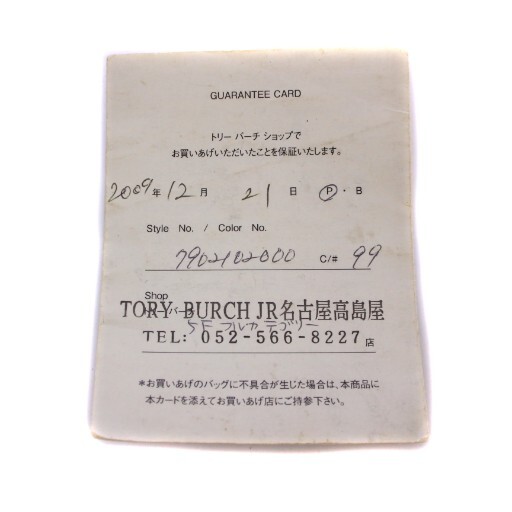 GUARANTEE CARD
トリー バーチ ショップで
お買いあげいただいたことを保証いたします。
2009年 12月 21日 Ⓟ・B
Style No. / Color No.
7902102000 C/# 99
Shop
TORY BURCH JR名古屋高島屋
5F フルカテゴリー
TEL: 052-566-8227 店
*お買いあげのバッグに不具合が生じた場合は、本商品に
本カードを添えてお買いあげ店にご持参下さい。